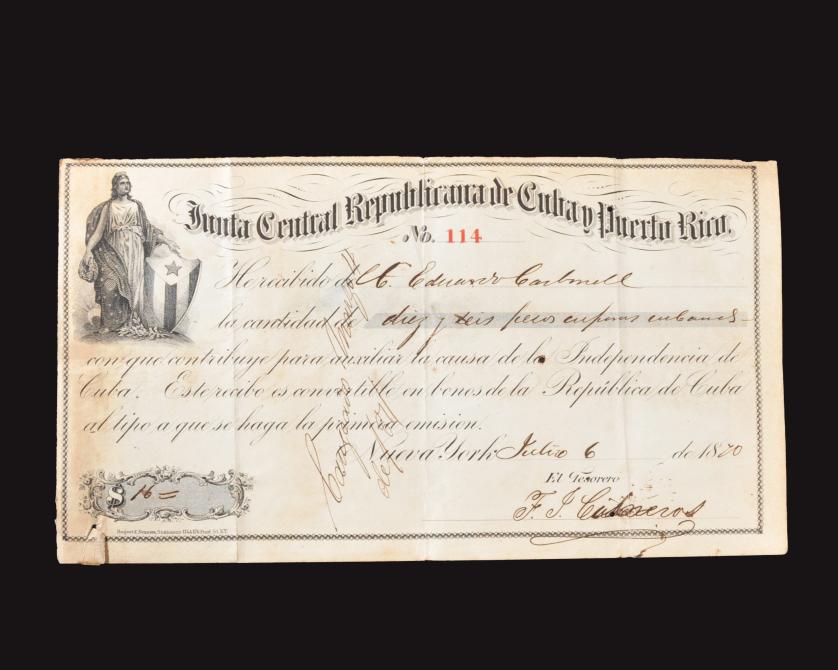 Junta Central Republicana de Cuba y Puerto Rico.
No. 114
He recibido del C. Eduardo Carbonell
la cantidad de diez y seis pesos cubanos
con que contribuye para auxiliar la causa de la Independencia de
Cuba. Este recibo es convertible en bonos de la República de Cuba
al tipo a que se haga la primera emision.
Nueva York Julio 6 de 1870
El Tesorero
F. J. Cisneros
$ 16=